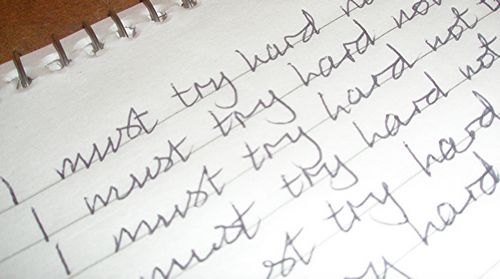 I must try hard
I must try hard not
I must try hard not
I must try hard not
must try hard
try hard